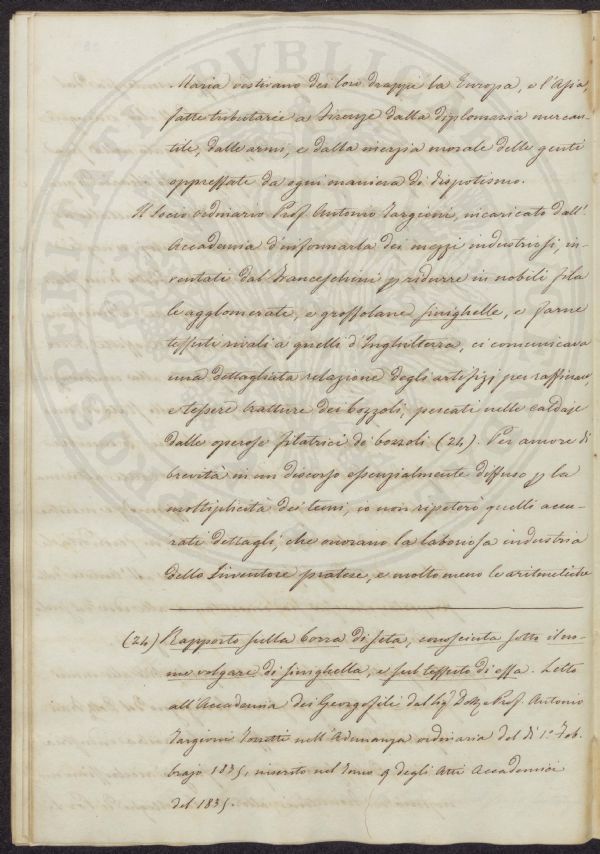 Maria vestivano dei loro drappi la Europa, e l'Asia,
fatte tributarie a Firenze dalla diplomazia mercan-
tile, dalle armi, e dalla inerzia morale delle genti
oppressate da ogni maniera di dispotismo.
Il Socio ordinario Prof. Antonio Targioni, incaricato dall'
Accademia d'informarla dei mezzi industriosi, in-
ventati dal Franceschini p ridurre in nobili fila
le agglomerate, e grossolane sinighelle, e farne
tessuti rivali a quelli d'Inghilterra, ci comunicava
una dettagliata relazione degli artifizj per raffinare,
e tessere tratture dei bozzoli, pescati nelle caldaje
dalle operose filatrici de bozzoli (24). Per amore di
brevità in un discorso essenzialmente diffuso p la
moltiplicità dei temi, io non ripeterò quelli accu-
rati dettagli, che onorano la laboriosa industria
dello Inventore pratese, e molto meno le aritmetiche
(24) Rapporto sulla borra di seta, conosciuta sotto il no-
me volgare di sinighella, e sul tessuto di essa. Letto
all'Accademia dei Georgofili dal Sig. Dott. e Prof. Antonio
Targioni Tozzetti nell'Adunanza ordinaria del dì 1.° Feb-
brajo 1835, inserito nel Tomo 9 degli Atti Accademici
del 1835.
PROSPERITATI PUBLICAE